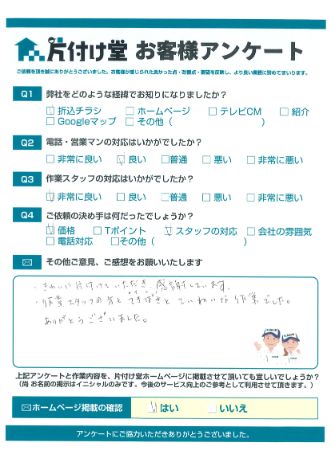 片付け堂 お客様アンケート
ご依頼を頂き誠にありがとうございました。お客様が感じられた良かった点・お叱り・要望を反映し、より良い業務に努めてまいります。
Q1 弊社をどのような経緯でお知りになりましたか?
折込チラシ ホームページ テレビCM 紹介
Googleマップ その他( )
Q2 電話・営業マンの対応はいかがでしたか?
非常に良い 良い 普通 悪い 非常に悪い
Q3 作業スタッフの対応はいかがでしたか?
非常に良い 良い 普通 悪い 非常に悪い
Q4 ご依頼の決め手は何だったでしょうか?
価格 Tポイント スタッフの対応 会社の雰囲気
電話対応 その他( )
その他ご意見、ご感想をお願いいたします
・きれいに片付けていただき 感謝しています。
・作業スタッフの方も てきぱきと ていねいな作業でした。
ありがとうございました。
上記アンケートと作業内容を、片付け堂ホームページに掲載させて頂いても宜しいでしょうか?
(尚 お名前の掲示はイニシャルのみです。今後のサービス向上のご参考として利用させて頂きます。)
ホームページ掲載の確認 はい いいえ
アンケートにご協力いただきありがとうございました。